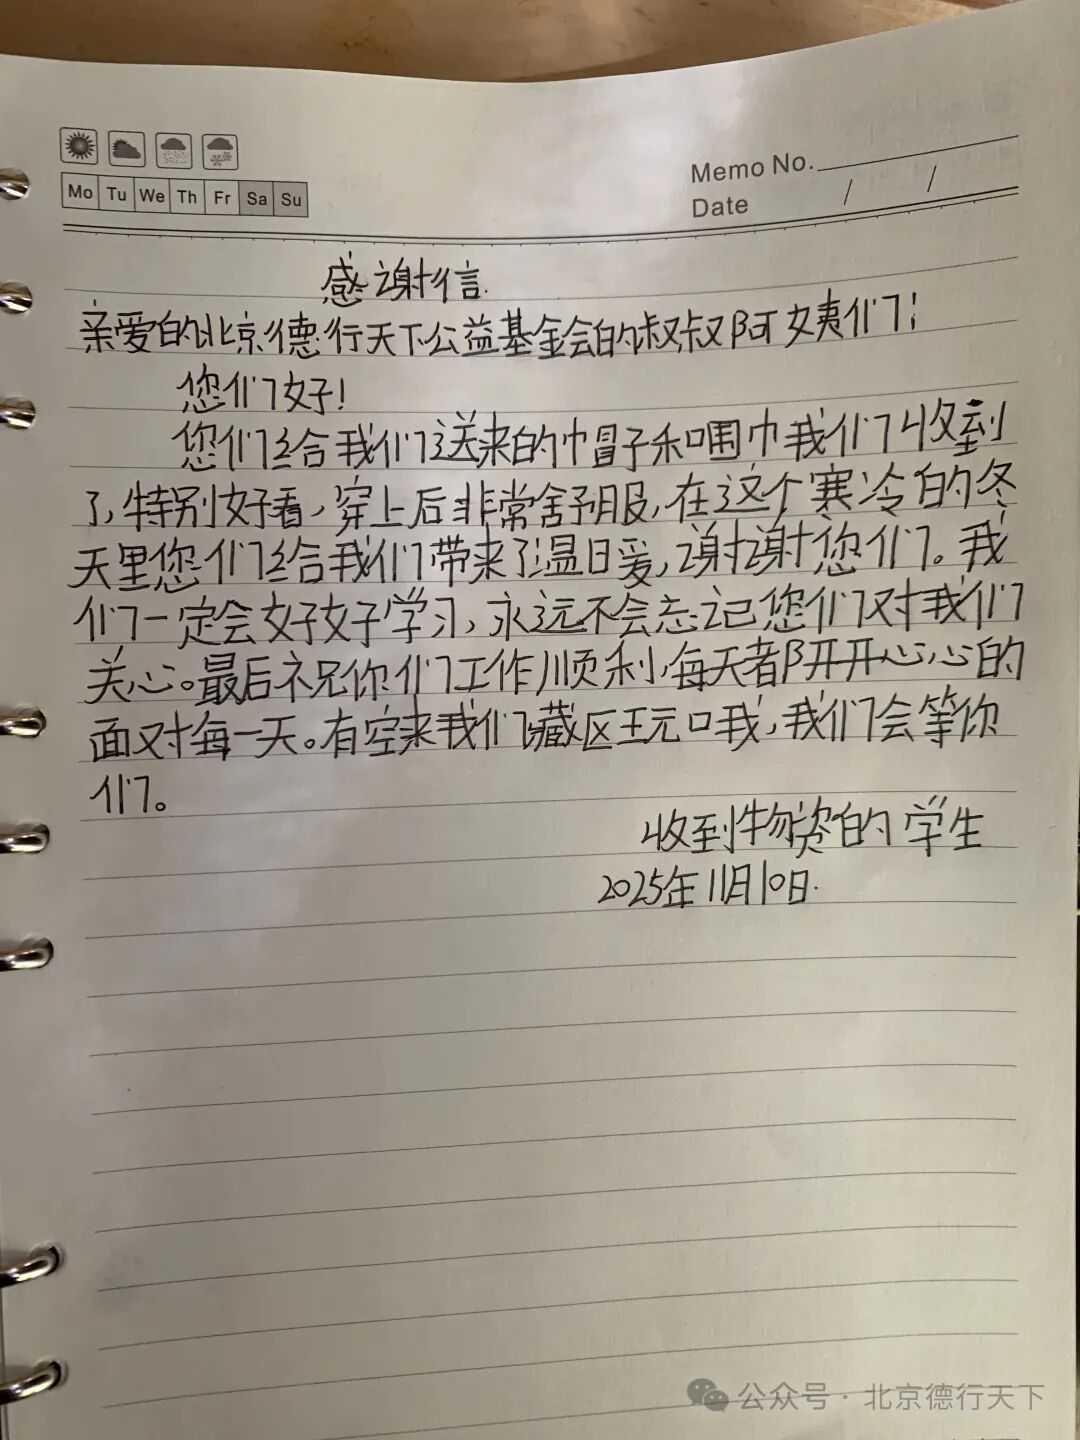 Mo Tu We Th Fr Sa Su
Memo No.
Date / /
感谢信.
亲爱的北京德行天下公益基金会的叔叔阿姨们！
您们好！
您们给我们送来的帽子和围巾我们收到
了,特别好看,穿上后非常舒服,在这个寒冷的冬
天里您们给我们带来了温暖,谢谢您们。我
们一定会好好学习,永远不会忘记您们对我们
关心。最后祝你们工作顺利,每天都开开心心的
面对每一天。有空来我们藏区玩,我们会等你
们。
收到物资的学生
2025年11月10日.
公众号·北京德行天下